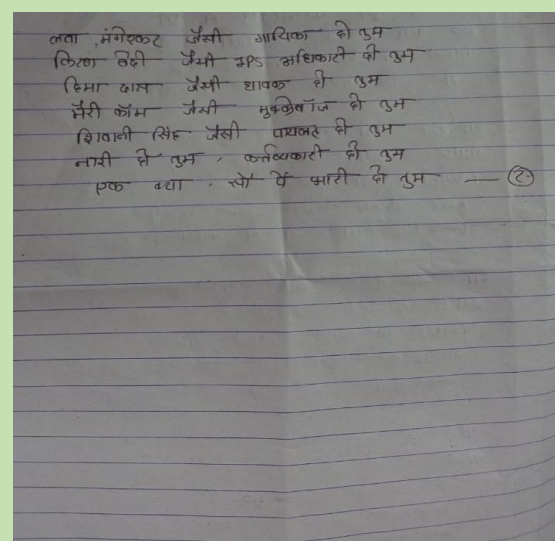 लता मंगेश्कर जैसी गायिका हो तुम
किरण बेदी जैसी IPS अधिकारी हो तुम
हिमा दास जैसी धावक हो तुम
मैरी कॉम जैसी मुक्केबाज हो तुम
शिवानी सिंह जैसी पायलट हो तुम
नारी हो तुम, कर्त्तव्यकारी हो तुम
एक क्या, सौ पें भारी हो तुम — (2)